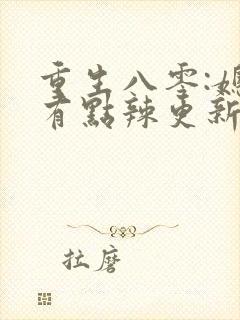 重生八零:媳
有點辣更新
拉磨